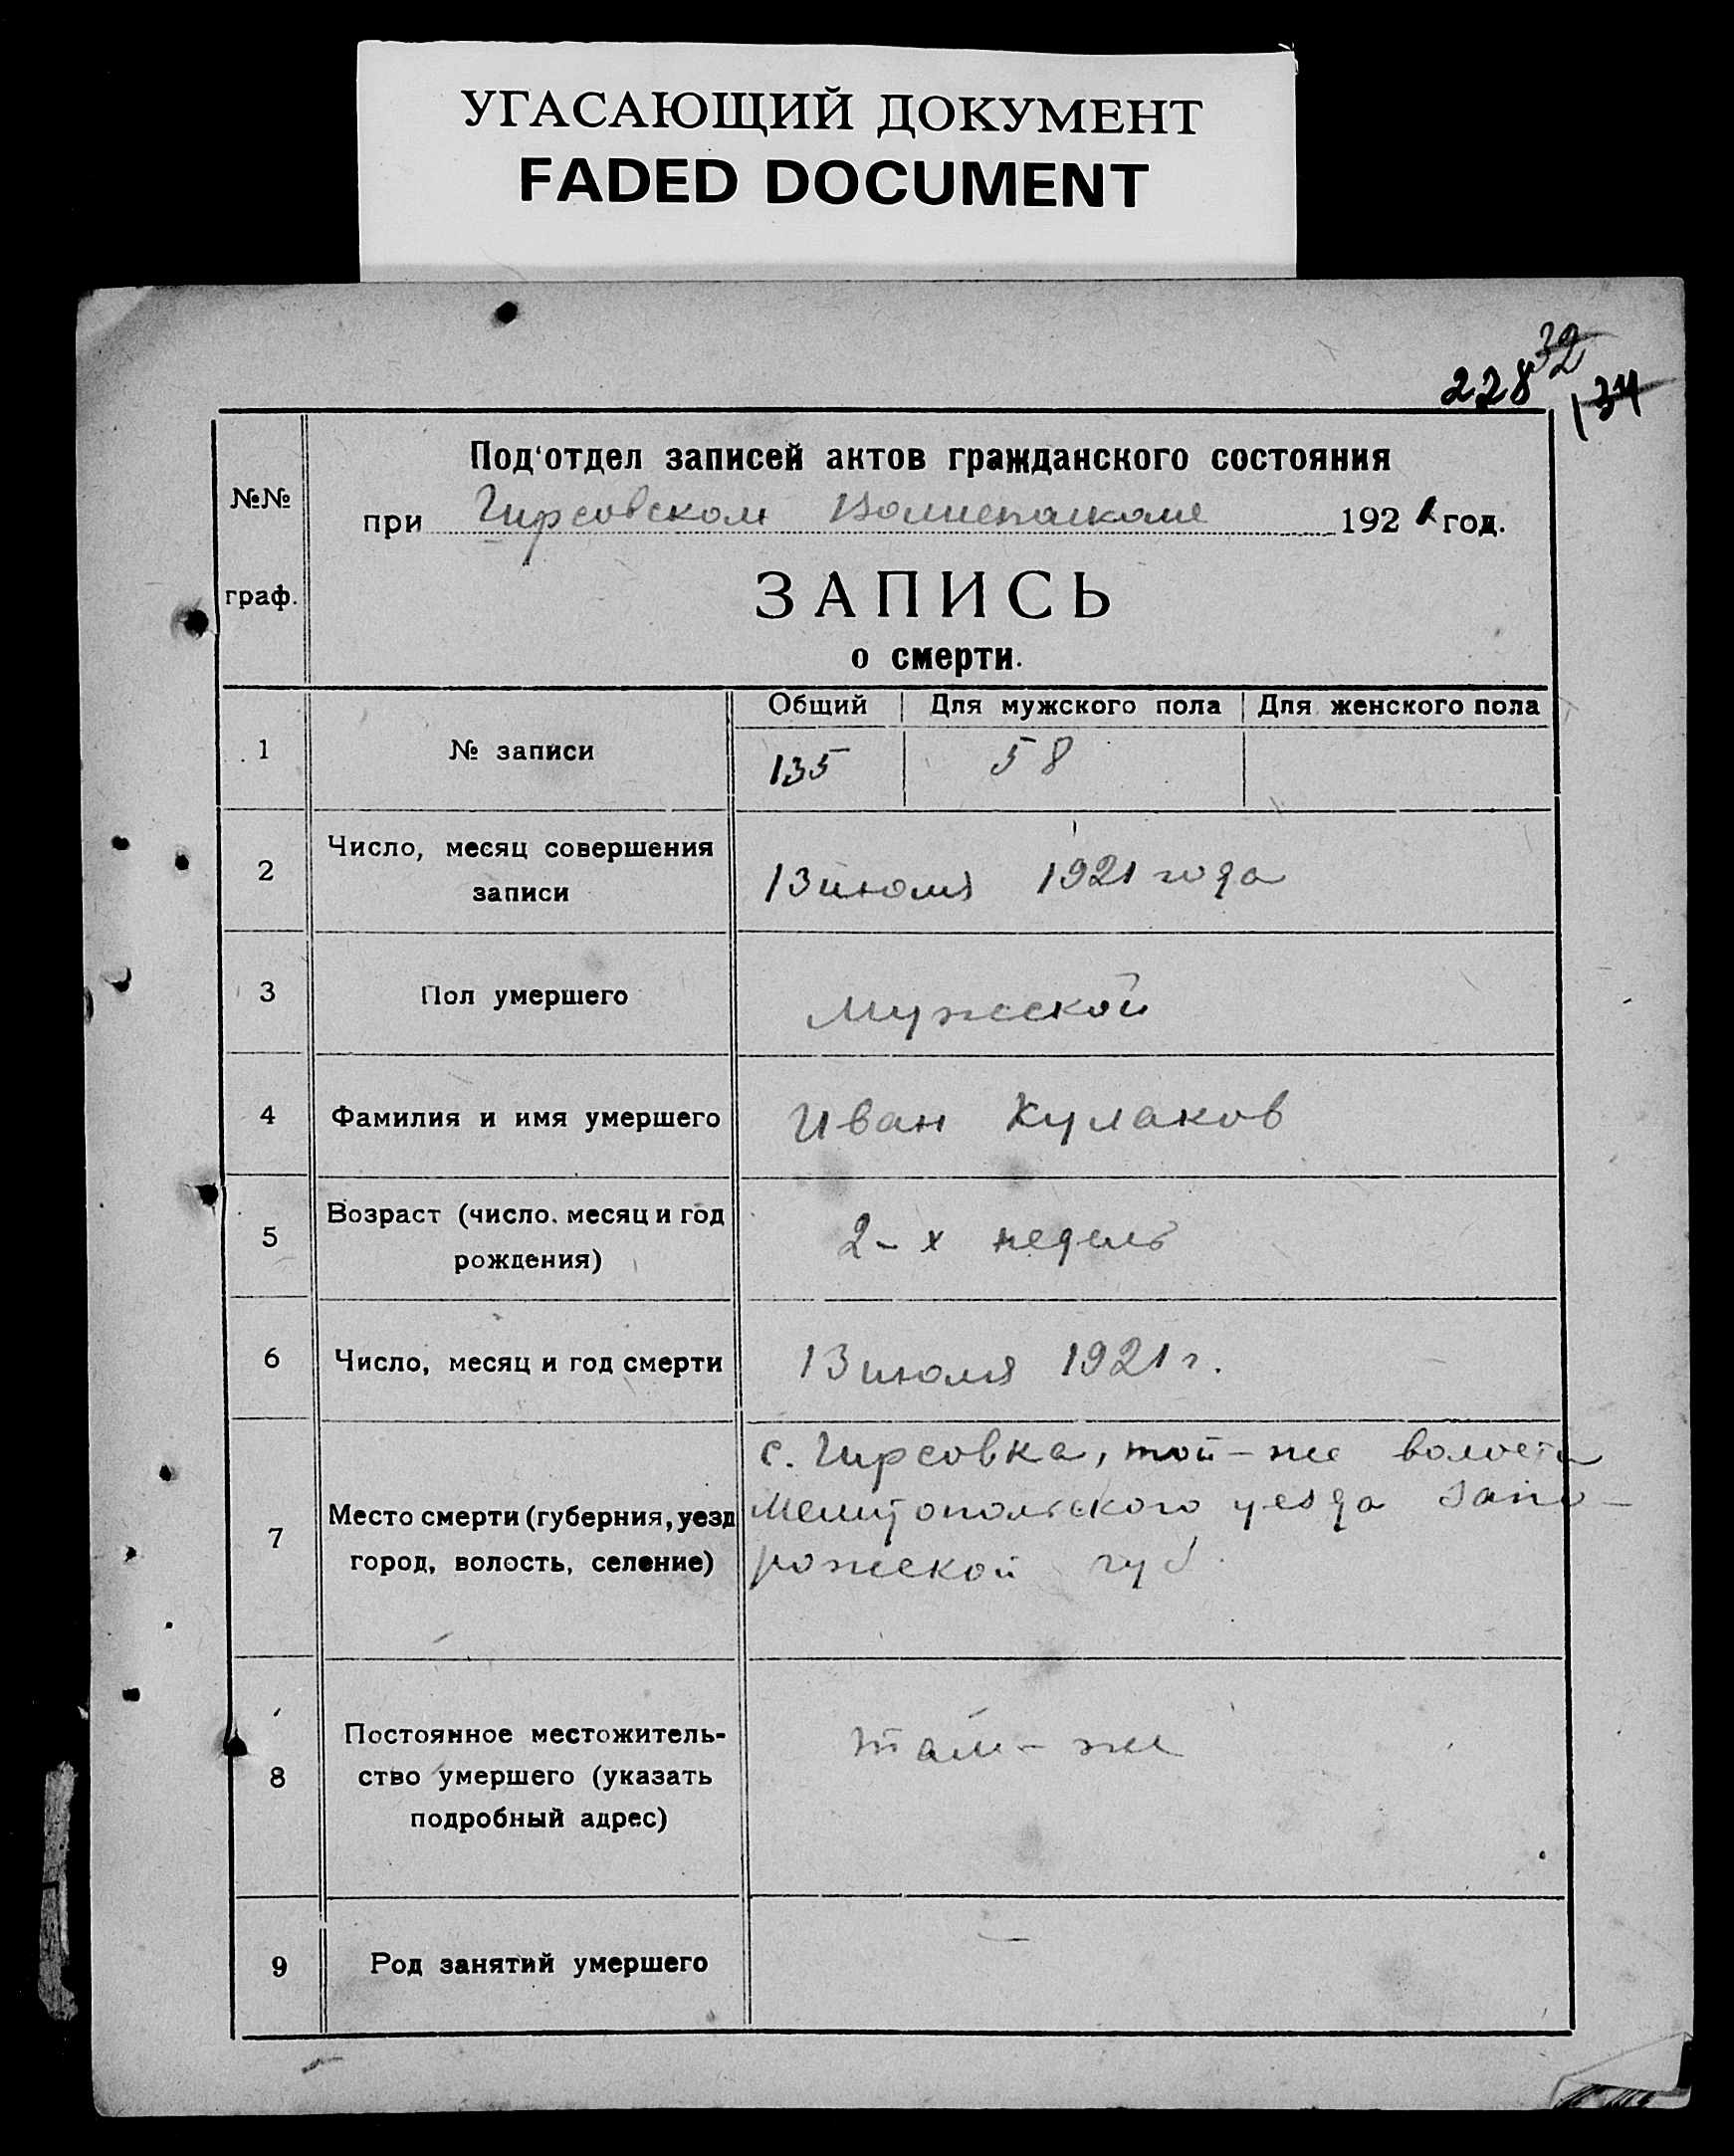 УГАСАЮЩИЙ ДОКУМЕНТ
FADED DOCUMENT
32
228
134
Под'отдел записей актов гражданского состояния
№№
при Гирсовском 1921 год.
граф.
ЗАПИСЬ
о смерти.
Общий Для мужского пола Для женского пола
1 № записи 135 58
2 Число, месяц совершения
записи
13 июля 1921 года
3 Пол умершего Мужской
4 Фамилия и имя умершего Иван Кулаков
5 Возраст (число, месяц и год
рождения)
2-х недель
6 Число, месяц и год смерти 13 июля 1921 г.
7 Место смерти (губерния, уезд
город, волость, селение)
с. Гирсовка, той-же волости
Мелитопольского уезда Запо-
рожской губ.
8 Постоянное местожитель-
ство умершего (указать
подробный адрес)
там-же
9 Род занятий умершего —